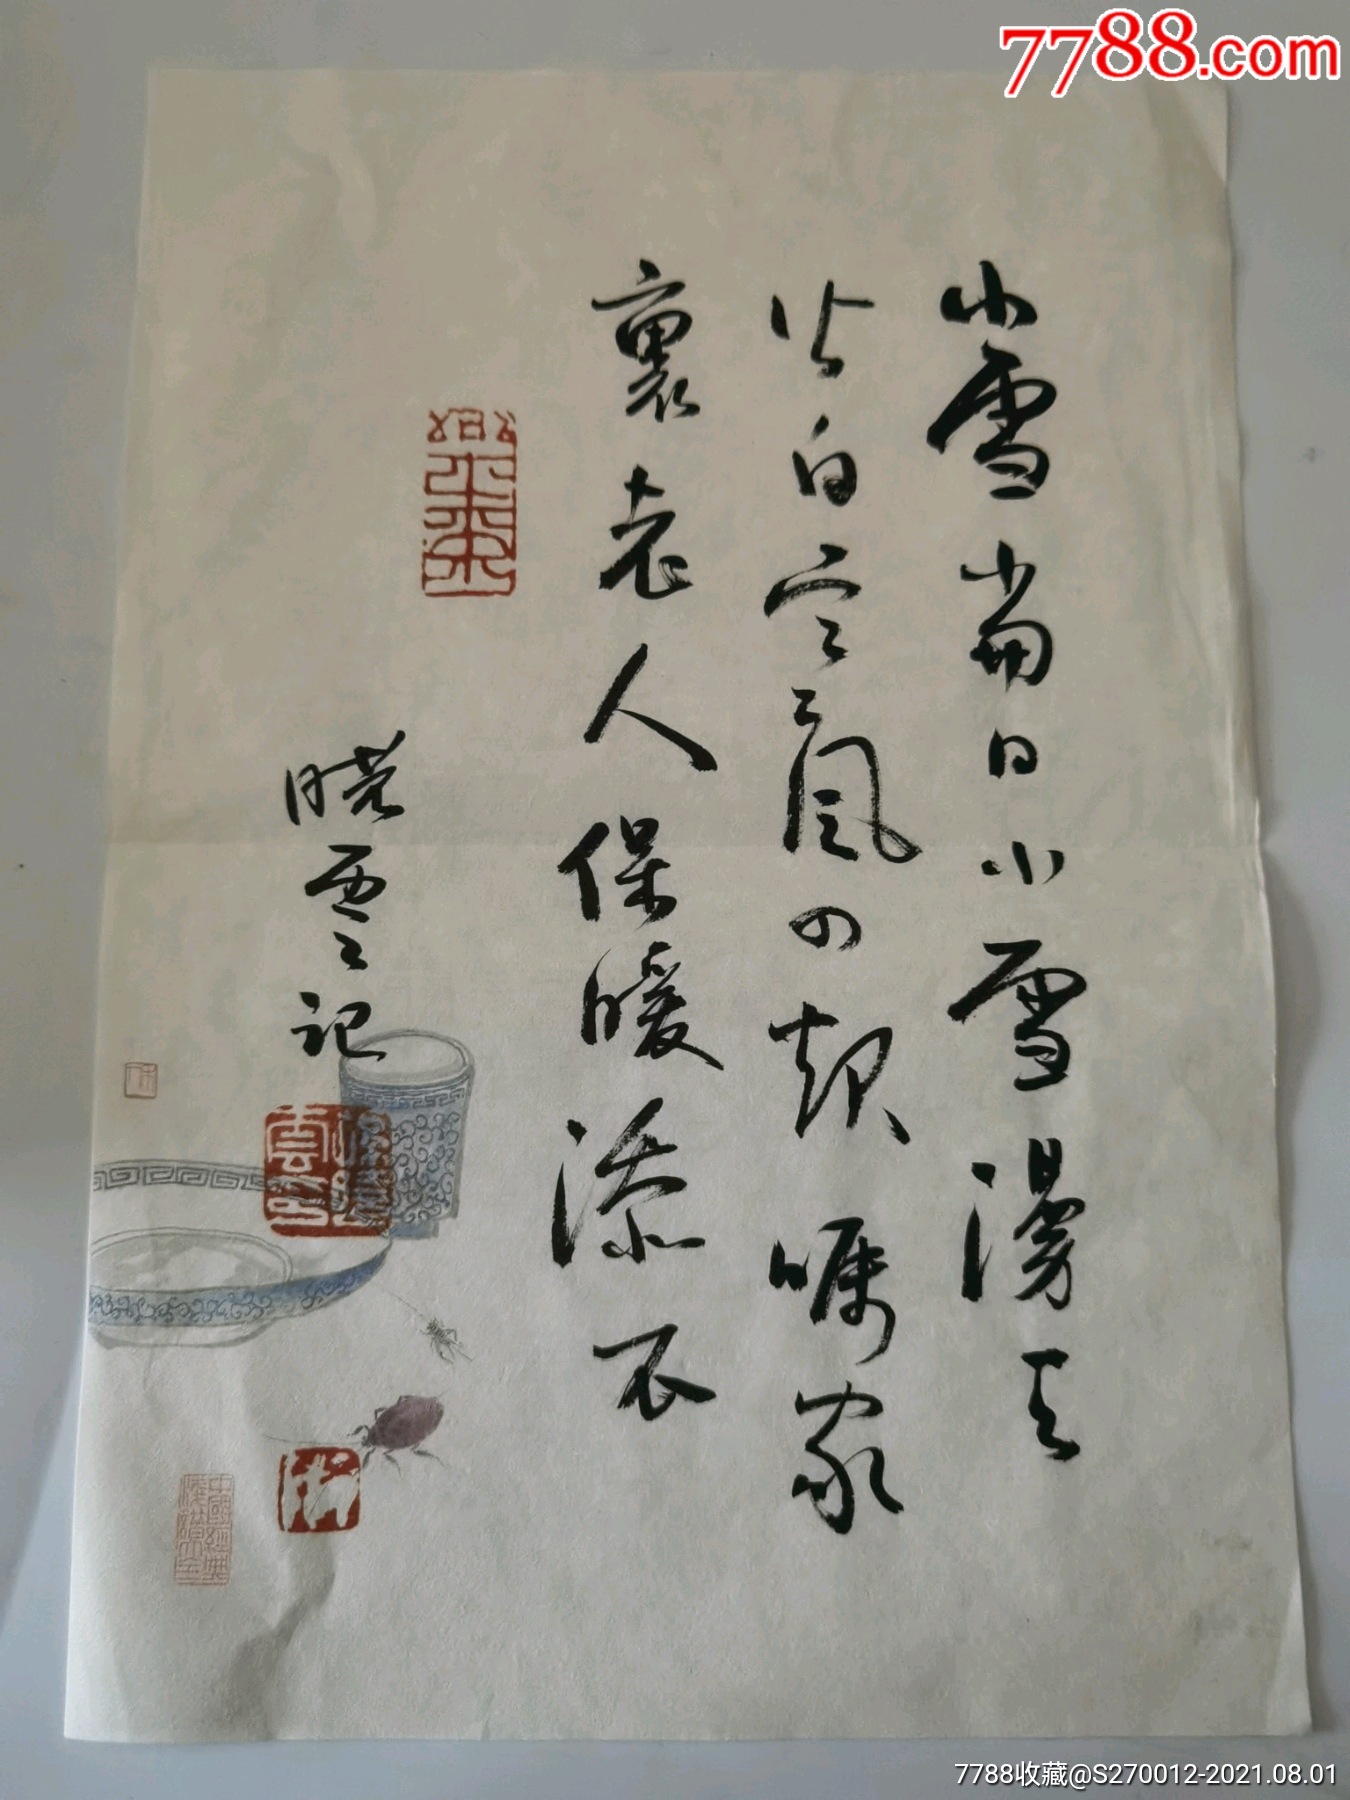 7788.com
小雪當日小雪漫天
皆白寒風四起囑家
裏老人保暖添衣
曉雲記
7788收藏@S270012-2021.08.01